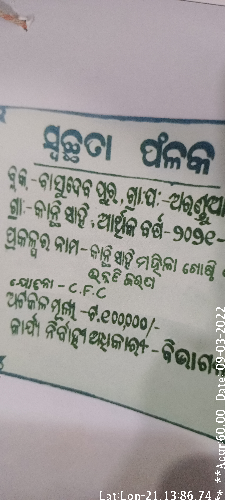 ସ୍ୱଚ୍ଛତା ଫଳକ
ବ୍ଲକ୍ -ବାସୁଦେବ ପୁର, ଗ୍ରା.ପଂ:-ଅରଣ୍ଡୁଆ
ଗ୍ରା:-କାନ୍ଥି ସାହି, ଆର୍ଥିକ ବର୍ଷ -୨୦୨୧-
ପ୍ରକଳ୍ପର ନାମ -କାନ୍ଥି ସାହି ମହିଳା ଗୋଷ୍ଠି
ଯୋଜନା - C.F.C
ଅଟକଳ ମୂଲ୍ୟ -ଟ.୧୦୦,୦୦୦/-
କାର୍ଯ୍ୟ ନିର୍ବାହୀ ଅଧିକାରୀ - ବିଭାଗୀ
Lat:Lon-21.13:86.74
**Acur:60.00 Date: 09-03-2022